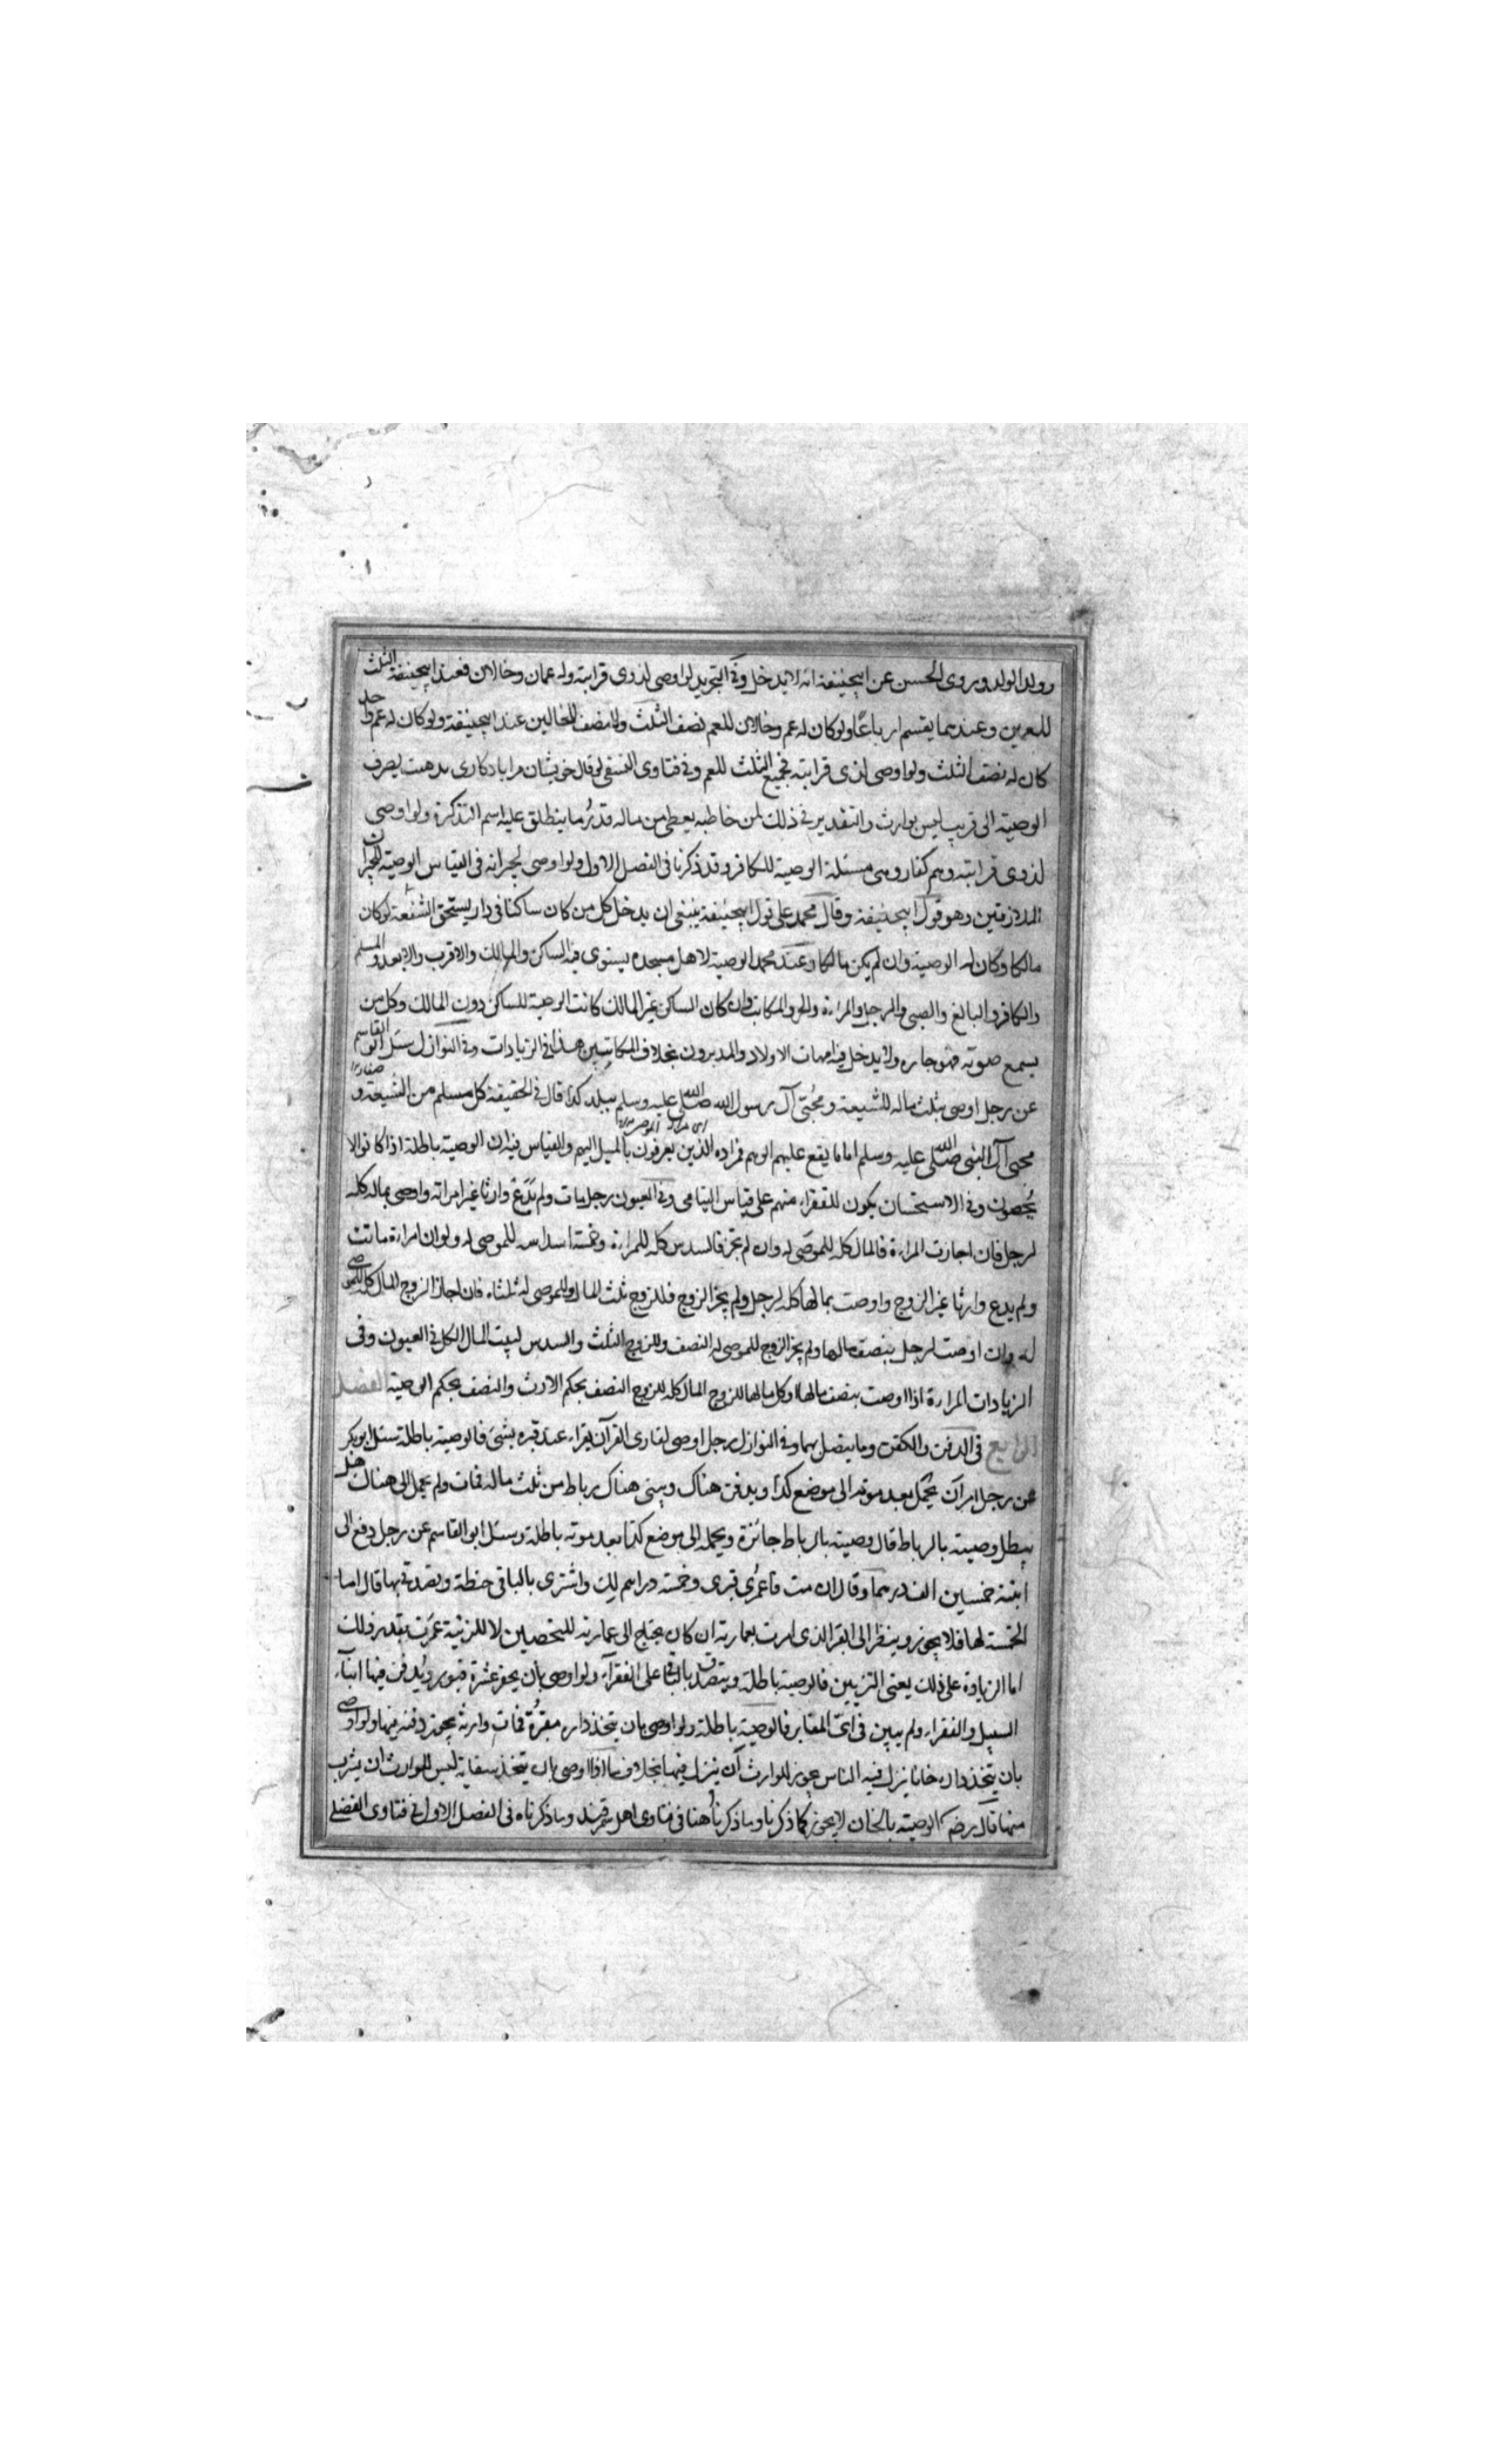 وولد الولد وروى الحسن عن ابيحنيفة انه لا يدخل وفي التجريد لو اوصى لذوى قرابته وله عمان وخالان فعند ابيحنيفة الثلث
للعمين وعندهما يقسم ارباعًا ولو كان له عم وخالان للعم نصف الثلث والنصف للخالين عند ابيحنيفة ولو كان له عم واحد
كان له نصف الثلث ولو اوصى لذى قرابته فجميع الثلث للعم وفي فتاوى النسفى لو قال خويشان مرا يادكارى بدهيت يصرف
الوصية الى قريب ليس بوارث والتقدير في ذلك لمن خاطبه يعطى من ماله قدرُ ما ينطلق عليه اسم التذكرة ولو اوصى
لذوى قرابته وهم كفار وهى مسئلة الوصية للكافر وقد ذكرنا فى الفصل الاول ولو اوصى لجيرانه فى القياس الوصية للجيران
الملازقين وهو قول ابيحنيفة وقال محمد على قول ابيحنيفة ينبغى ان يدخل كل من كان ساكنا فى دار يستحق الشفعة لو كان
مالكا وكان له الوصية وان لم يكن مالكا وعند محمد الوصية لاهل مسجده يستوى فيه الساكن والمالك والاقرب والابعد والمسلم
والكافر والبالغ والصبى والرجل والمراءة والحر والمكاتب وان كان الساكن غير المالك كانت الوصية للساكن دون المالك وكل من
يسمع صوته فهو جاره ولا يدخل فيه امهات الاولاد والمدبرون بخلاف المكاتبين هذا في الزيادات وفي النوازل سئل ابو القاسم
عن رجل اوصى بثلث ماله للشيعة ومُحبّى آل رسول الله صلى الله عليه وسلم ببلد كذا قال في الحقيقة كل مسلم من الشيعة و
محبى آل النبى صلى الله عليه وسلم اما ما يقع عليهم الوهم فمراده الذين يعرفون بالميل اليهم والقياس فيه ان الوصية باطلة اذا كانوا لا
يُحصون وفي الاستحسان يكون للفقراء منهم على قياس اليتامى وفي العيون رجل مات ولم يدع وارثا غير امراته واوصى بماله كله
لرجل فان اجازت المراءة فالمال كله للموصَى له وان لم تجز فالسدس كله للمراءة وخمسة اسداسه للموصى له ولو ان امراءة ماتت
ولم يدع وارثا غير الزوج واوصت بمالها كله لرجل ولم يجز الزوج فللزوج ثلث المال وللموصى له ثلثاه فان اجاز الزوج المال كله للموصى
له وان اوصت لرجل بنصف مالها ولم يجز الزوج للموصى له النصف وللزوج الثلث والسدس لبيت المال الكل في العيون وفى
الزيادات المراءة اذا اوصت بنصف مالها او كل مالها للزوج المال كله للزوج النصف بحكم الارث والنصف بحكم الوصية الفصل
الرابع فى الدفن والكفن وما يتصل بهما وفي النوازل رجل اوصى لقارى القرآن يقراء عند قبره بشئ فالوصية باطلة سئل ابو بكر
عن رجل امر ان يحمل بعد موته الى موضع كذا ويدفن هناك ويبنى هناك رباط من ثلث ماله فمات ولم يحمل الى هناك هل
يبطل وصيته بالرباط قال وصيته بالرباط جائزة ويحمله الى موضع كذا بعد موته باطلة وسئل ابو القاسم عن رجل دفع الى
ابنته خمسين الف درهما وقال ان مت فاعمرُى قبرى وخمسة دراهم لك واشترى بالباقى حنطة وتصدقى بها قال اما
الخمسة لها فلا يجوز وينظر الى القبر الذى امرت بعمارته ان كان يحتاج الى عمارته للتحصين لا للزينة عمرت بقدر ذلك
اما الزيادة على ذلك يعنى التزيين فالوصية باطلة ويتصدق بالباقى على الفقرآء ولو اوصى بان يحفر عشرة قبور ويدفن فيها ابنآء
السبيل والفقراء ولم يبين فى اىّ المقابر فالوصية باطلة ولو اوصى بان يتخذ داره مقبرة فمات وارثه يجوز دفنه فيها ولو اوصى
بان يتخذ داره خانا ينزل فيه الناس يجوز للوارث ان ينزل فيها بخلاف ما اذا اوصى بان يتخذ سقاية ليس للوارث ان يشرب
منها قال رضه الوصية بالخان لا يجوز كما ذكرنا وما ذكرناُ هنا فى فتاوى اهل سمرقند وما ذكرناه فى الفصل الاول في فتاوى الفضلى